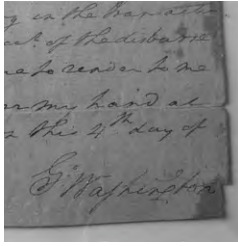 in the
of the disburse
to render to me
my hand at
this 4th day of
G:Washington